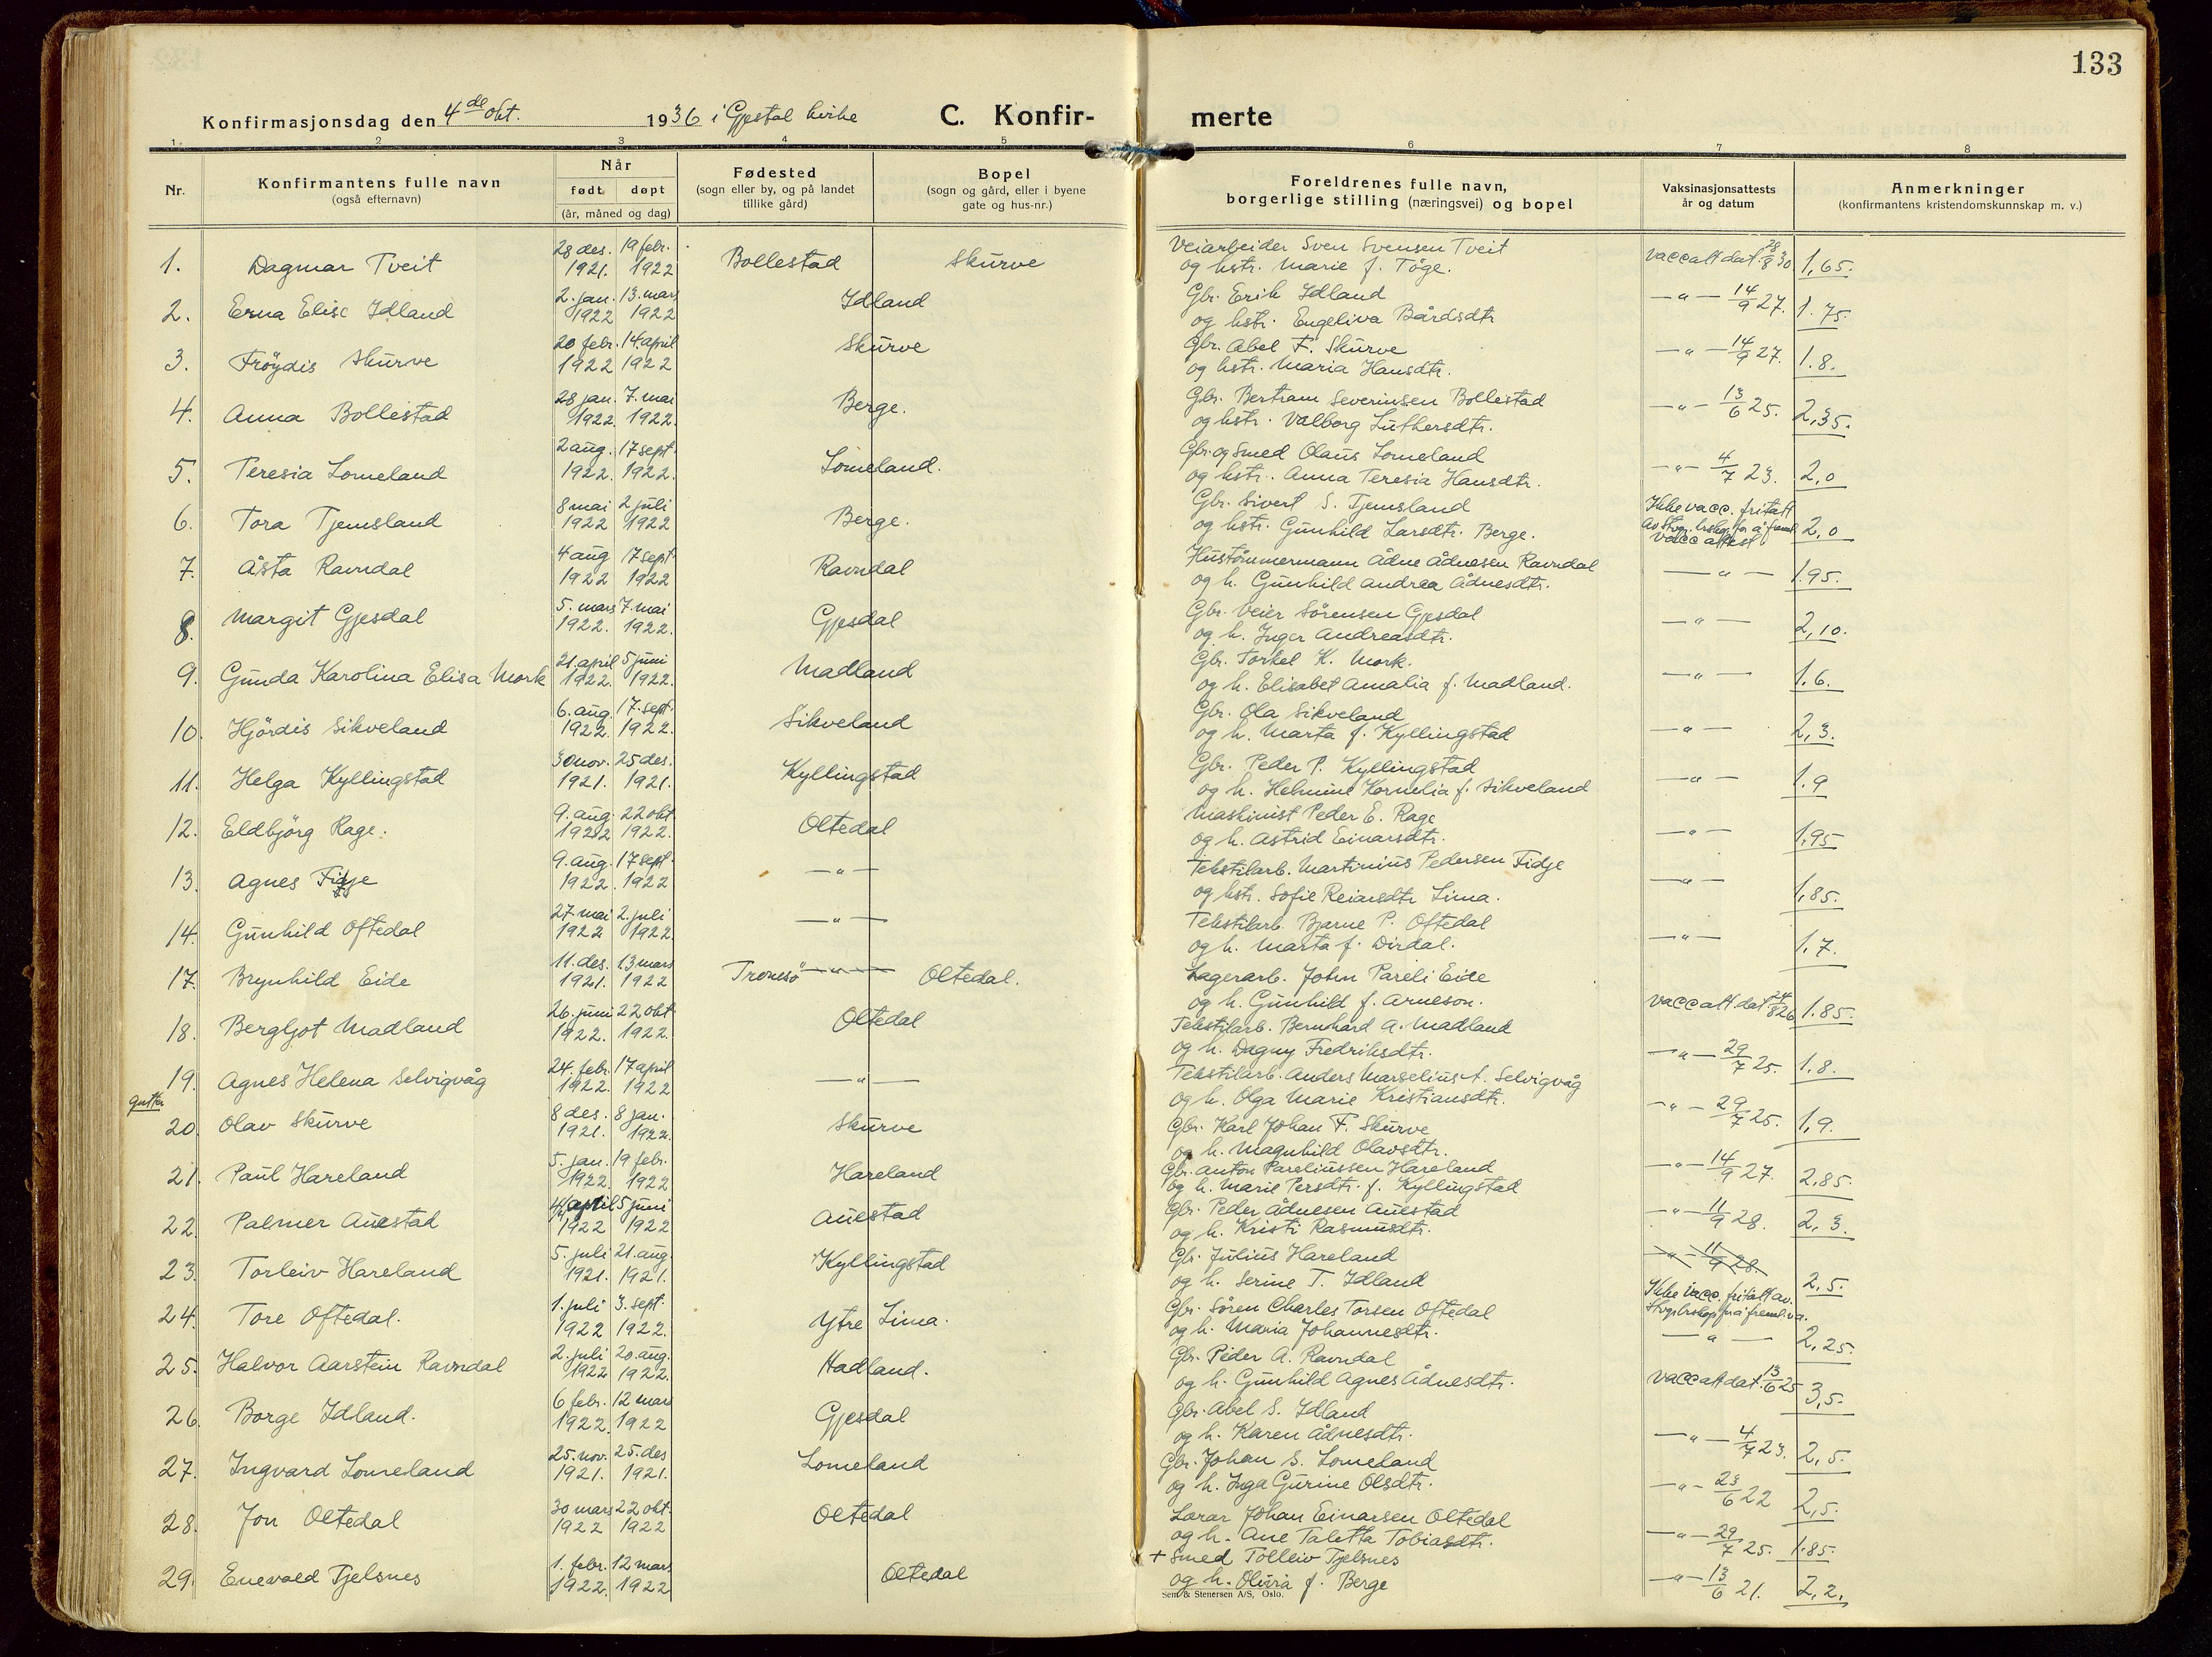 133
Konfirmasjonsdag den 4de okt. 1936 i Gjestal kirke
C. Konfirmerte
1. 2 3 4 5 6 7 8
Nr.
Konfirmantens fulle navn
(også efternavn)
Når
født døpt
(år, måned og dag)
Fødested
(sogn eller by, og på landet
tillike gård)
Bopel
(sogn og gård, eller i byene
gate og hus-nr.)
Foreldrenes fulle navn,
borgerlige stilling (næringsvei) og bopel
Vaksinasjonsattests
år og datum
Anmerkninger
(konfirmantens kristendomskunnskap m. v.)
1. Dagmar Tveit 28 des. 1921. 19 febr. 1922 Bollestad Skurve Veiarbeider Sven Svensen Tveit
og hstr. Marie f. Töge. Vaccatt dat. 28/8 30 1,65.
2. Erna Elise Idland 2. jan. 1922 13. mars 1922 Idland Gbr. Erik Idland
og hstr. Engeliva Bårdsdtr. —"— 14/9 27. 1.75.
3. Fröydis Skurve 20 febr. 1922 14. april 1922 Skurve Gbr. Abel F. Skurve
og hstr. Maria Hansdtr. —"— 14/9 27. 1.8.
4. Anna Bollestad 28 jan. 1922. 7. mai 1922. Berge. Gbr. Bertram Severinsen Bollestad
og hstr. Valborg Luthersdtr. —"— 13/6 25. 2,35.
5. Teresia Lomeland 2 aug. 1922. 17 sept. 1922. Lomeland. Gbr. og Smed Olaus Lomeland
og hstr. Anna Teresia Hansdtr. —"— 4/7 23. 2,0
6. Tora Tjemsland 8 mai 1922 2 juli 1922 Berge. Gbr. Sivert S. Tjemsland
og hstr. Gunhild Larsdtr. Berge. Ikke vacc. fritatt
av for å freml.
vacc attest 2,0
7. Åsta Ravndal 4 aug 1922 17 sept 1922 Ravndal Hustömmermann Ådne Ådnesen Ravndal
og h. Gunhild Andrea Ådnesdtr. —"— 1.95.
8. Margit Gjesdal 5. mars 1922. 7. mai 1922. Gjesdal Gbr. Veier Sörensen Gjesdal
og h. Inger Andreasdtr. —"— 2,10.
9. Gunda Karolina Elisa Mork 21. april 1922. 5 juni 1922. Madland Gbr. Torkel K. Mork.
og h. Elisabet Amalia f. Madland. —"— 1.6.
10. Hjördis Sikveland 6. aug. 1922. 17. sept. 1922. Sikveland Gbr. Ola Sikveland
og h. Marta f. Kyllingstad —"— 2,3.
11. Helga Kyllingstad 30 nov. 1921. 25 des. 1921. Kyllingstad Gbr. Peder P. Kyllingstad
og h. Helmine Kornelia f. Sikveland —"— 1.9
12. Eldbjörg Rage. 9. aug. 1922 22 okt 1922. Oltedal Maskinist Peder E. Rage
og h. Astrid Einarsdtr. —"— 1,95
13. Agnes Fidje 9. aug. 1922. 17 sept. 1922 —"— Tekstilarb. Martinius Pedersen Fidje
og hstr. Sofie Reiarsdtr Lima. —"— 1,85.
14. Gunhild Oftedal 27. mai 1922 2. juli 1922. —"— Tekstilarb. Bjarne P. Oftedal
og h. Marta f. Dirdal. —"— 1.7.
17. Brynhild Eide 11. des. 1921. 13 mars 1922 Tromsö —"— Oltedal. Lagerarb. John Pareli Eide
og h. Gunhild f. Arneson. Vacc att. dat 24/8 26 1.85.
18. Bergljot Madland 26. juni 1922. 22 okt 1922. Oltedal Tekstilarb. Bernhard A. Madland
og h. Dagny Fredriksdtr. —"— 29/7 25. 1.8.
19. Agnes Helena Selvigvåg 24. febr. 1922. 17 april 1922 —"— Tekstilarb. Anders Marselius A. Selvigvåg
og h. Olga Marie Kristiansdtr. —"— 29/7 25. 1,9.
gutter
20. Olav Skurve 8 des. 1921. 8 jan. 1922. Skurve Gbr. Karl Johan F. Skurve
og h. Magnhild Olavsdtr. —"— 14/9 27. 2,85.
21. Paul Hareland 5. jan. 1922. 19 febr. 1922 Hareland Gbr. Anton Pareliussen Hareland
og h. Marie Persdtr. f. Kyllingstad —"— 11/9 28. 2,3.
22. Palmer Auestad 4 april 1922 5 juni 1922 Auestad Gbr. Peder Ådnesen Auestad
og h. Kristi Rasmusdtr. —"— 11/9 28.
23. Torleiv Hareland 5. juli 1921. 21. aug. 1921. Kyllingstad Gbr. Julius Hareland
og h. Serine T. Idland Ikke vacc. fritatt av. 2,5.
24. Tore Oftedal. 1. juli 1922 3. sept. 1922. Ytre Lima. Gbr. Sören Charles Torsen Oftedal
og h. Maria Johannesdtr. —"— 2,25.
25. Halvor Aarstein Ravndal 2. juli 1922 20. aug. 1922. Hadland. Gbr. Peder A. Ravndal
og h. Gunhild Agnes Ådnesdtr. Vaccatt dat. 13/6 25 3,5.
26. Borge Idland. 6 febr. 1922 12 mars 1922 Gjesdal Gbr. Abel S. Idland
og h. Karen Ådnesdtr. —"— 4/7 23. 2,5.
27. Ingvard Lomeland 25. nov. 1921. 25. des 1921. Lomeland Gbr. Johan S. Lomeland
og h. Inga Gurine Olsdtr. —"— 23/6 22 2,5.
28. Jon Oltedal 30 mars 1922 22 okt. 1922 Oltedal Lærar Johan Einarsen Oltedal
og h. Ane Taletta Tobiasdtr. —"— 29/7 25. 1.85.
29. Enevald Tjelsnes 1. febr. 1922. 12 mars 1922 Oltedal + Smed Tolleiv Tjelsnes
og h. Olivia f. Berge —"— 13/6 21. 2,2.
Sem & Stenersen A/S, Oslo.